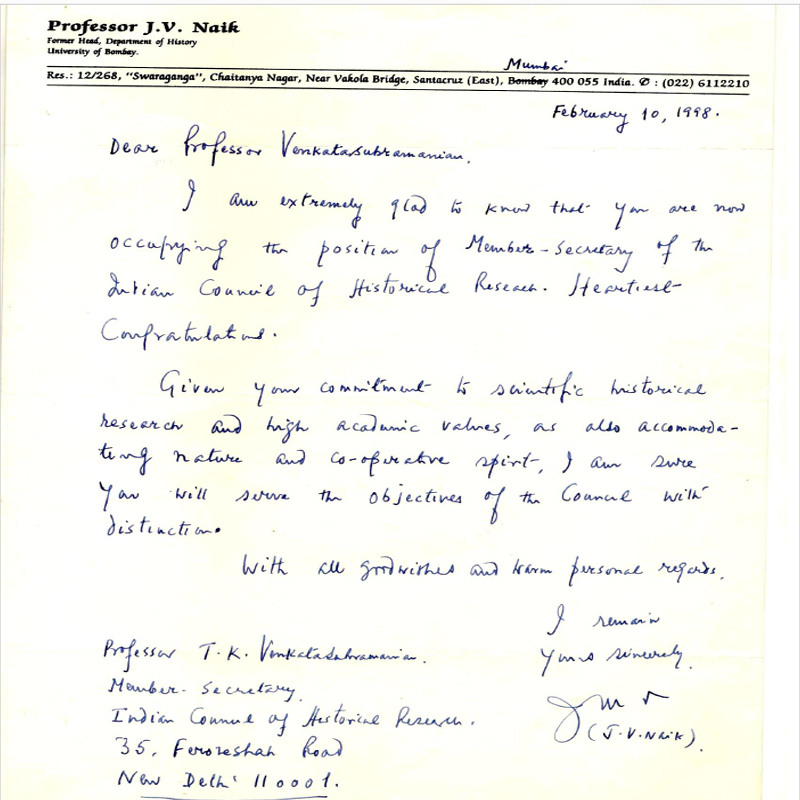 Professor J.V. Naik
Former Head, Department of History
University of Bombay.
Mumbai
Res.: 12/268, "Swaraganga", Chaitanya Nagar, Near Vakola Bridge, Santacruz (East), Bombay 400 055 India. ✆ : (022) 6112210
February 10, 1998.
Dear Professor Venkatasubramanian,
I am extremely glad to know that you are now
occupying the position of Member-Secretary of the
Indian Council of Historical Research. Heartiest
Congratulations.
Given your commitment to scientific historical
research and high academic values, as also accommoda-
ting nature and co-operative spirit, I am sure
you will serve the objectives of the Council with
distinction.
With all goodwishes and warm personal regards,
I remain
Yours sincerely,
(J.V. Naik).
Professor T.K. Venkatasubramanian.
Member-Secretary,
Indian Council of Historical Research.
35, Ferozeshah Road
New Delhi 110001.